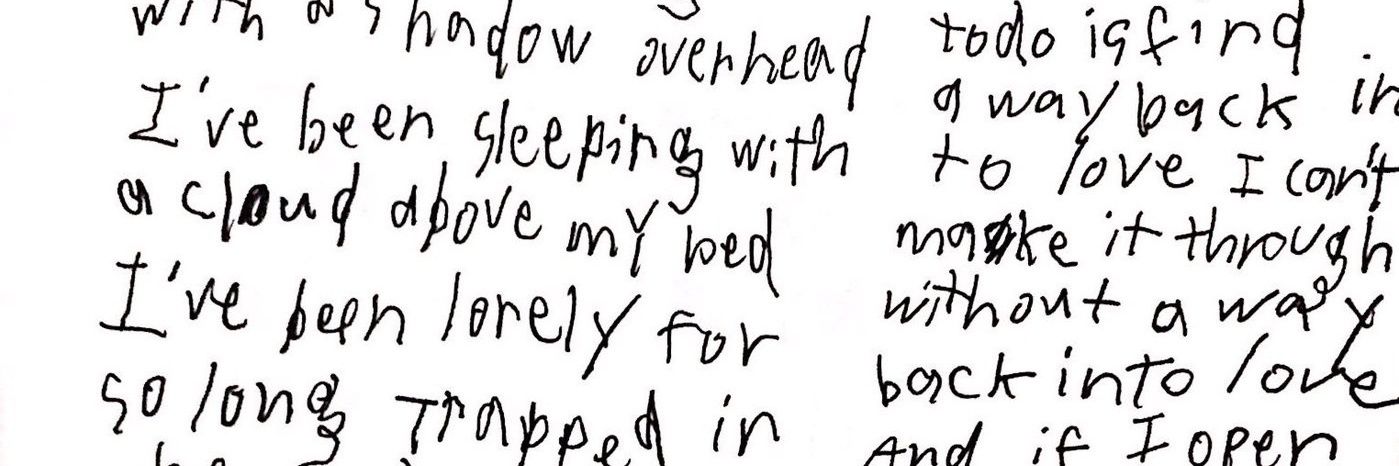 with a shadow overhead
I've been sleeping with
a cloud above my bed
I've been lonely for
so long Trapped in
todo is find
a way back in
to love I can't
make it through
without a way
back into love
And if I open